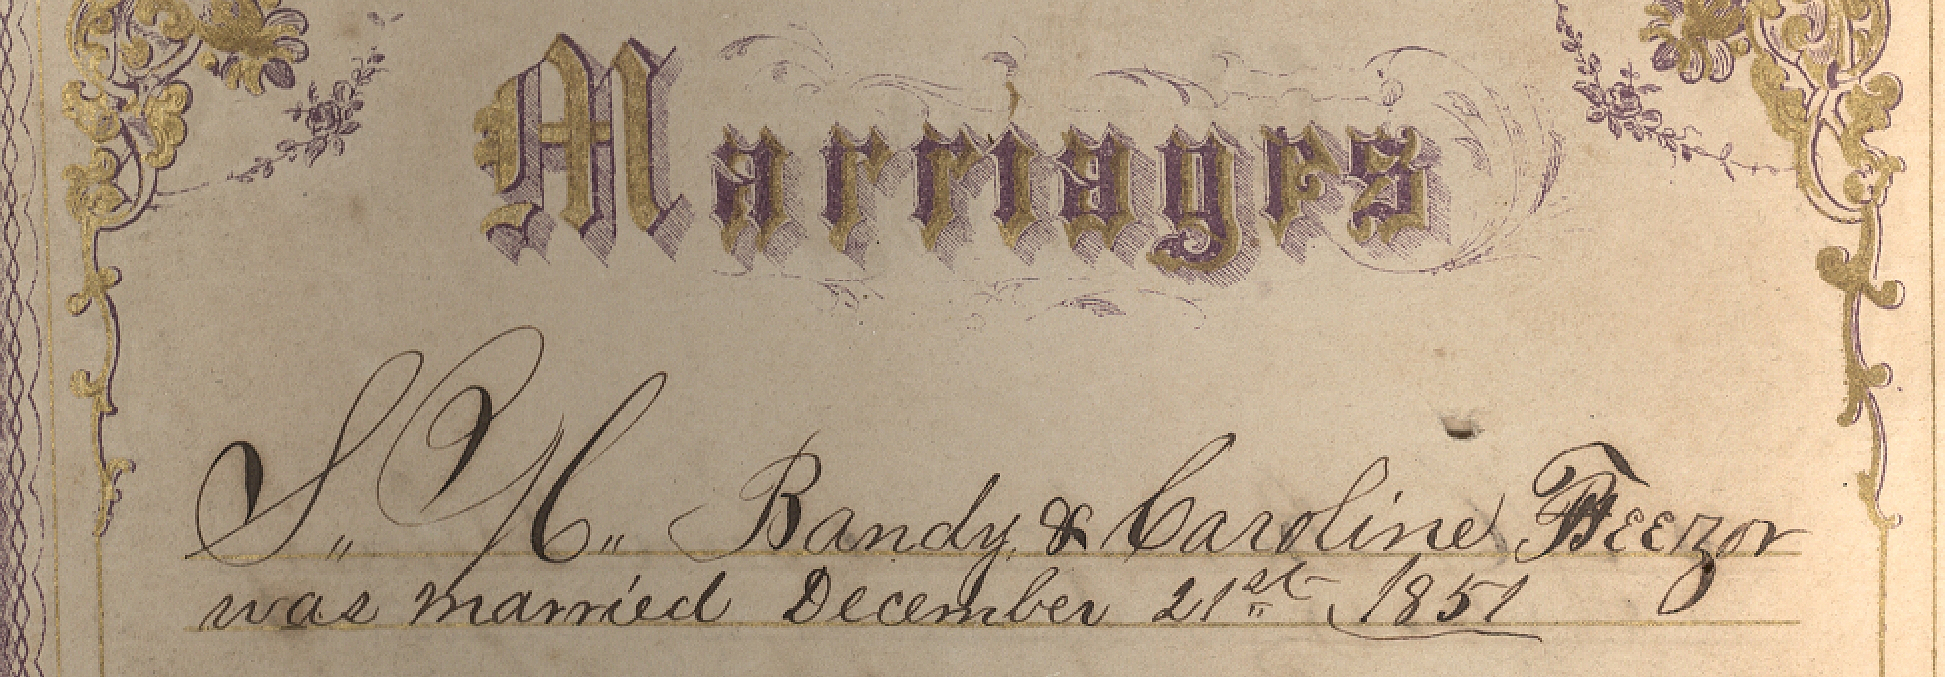 Marriages
S,, H,, Bandy, & Caroline Feezor
was married December 21st 1851